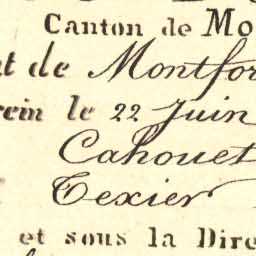 Canton de Mo
nt de Montfor
rein le 22 Juin
Cahouet
Texier
et sous la Dire